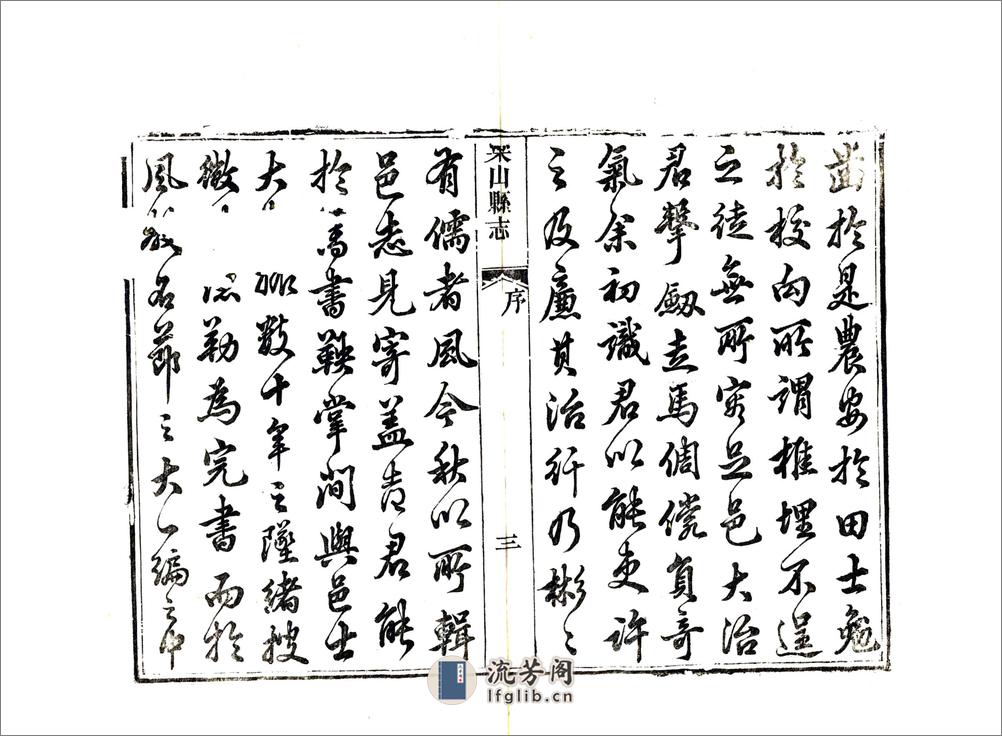 菑於是農安於田士勉
於校向所謂椎埋不逞
之徒無所容足邑大治
君擊劒走馬倜儻負奇
氣余初識君以能吏許
之及廉其治行乃彬〻
梁山縣志
序
三
有儒者風今秋以所輯
邑志見寄蓋吾君能
於簿書鞅掌間與邑士
大 數十年之墜緒搜
微 勒為完書而於
風 名節之大 編之中
流芳阁
lfglib.cn